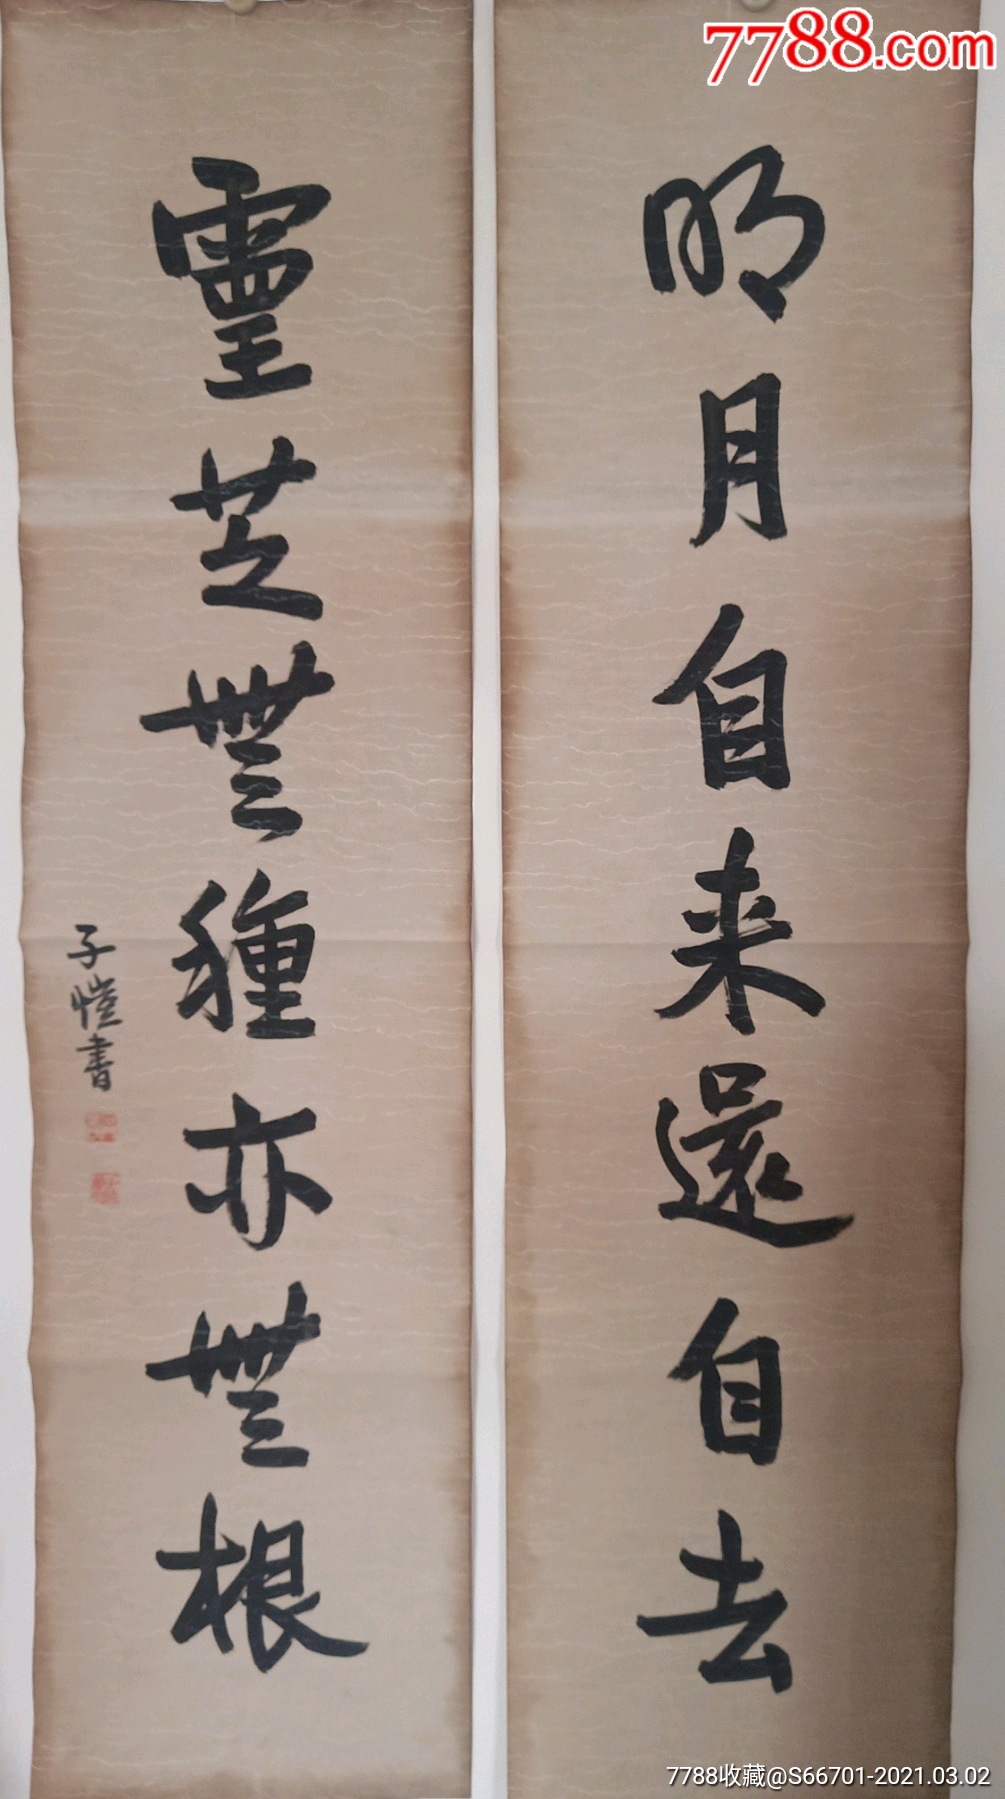 7788.com
明月自来還自去
靈芝無種亦無根
子愷書
7788收藏@S66701-2021.03.02